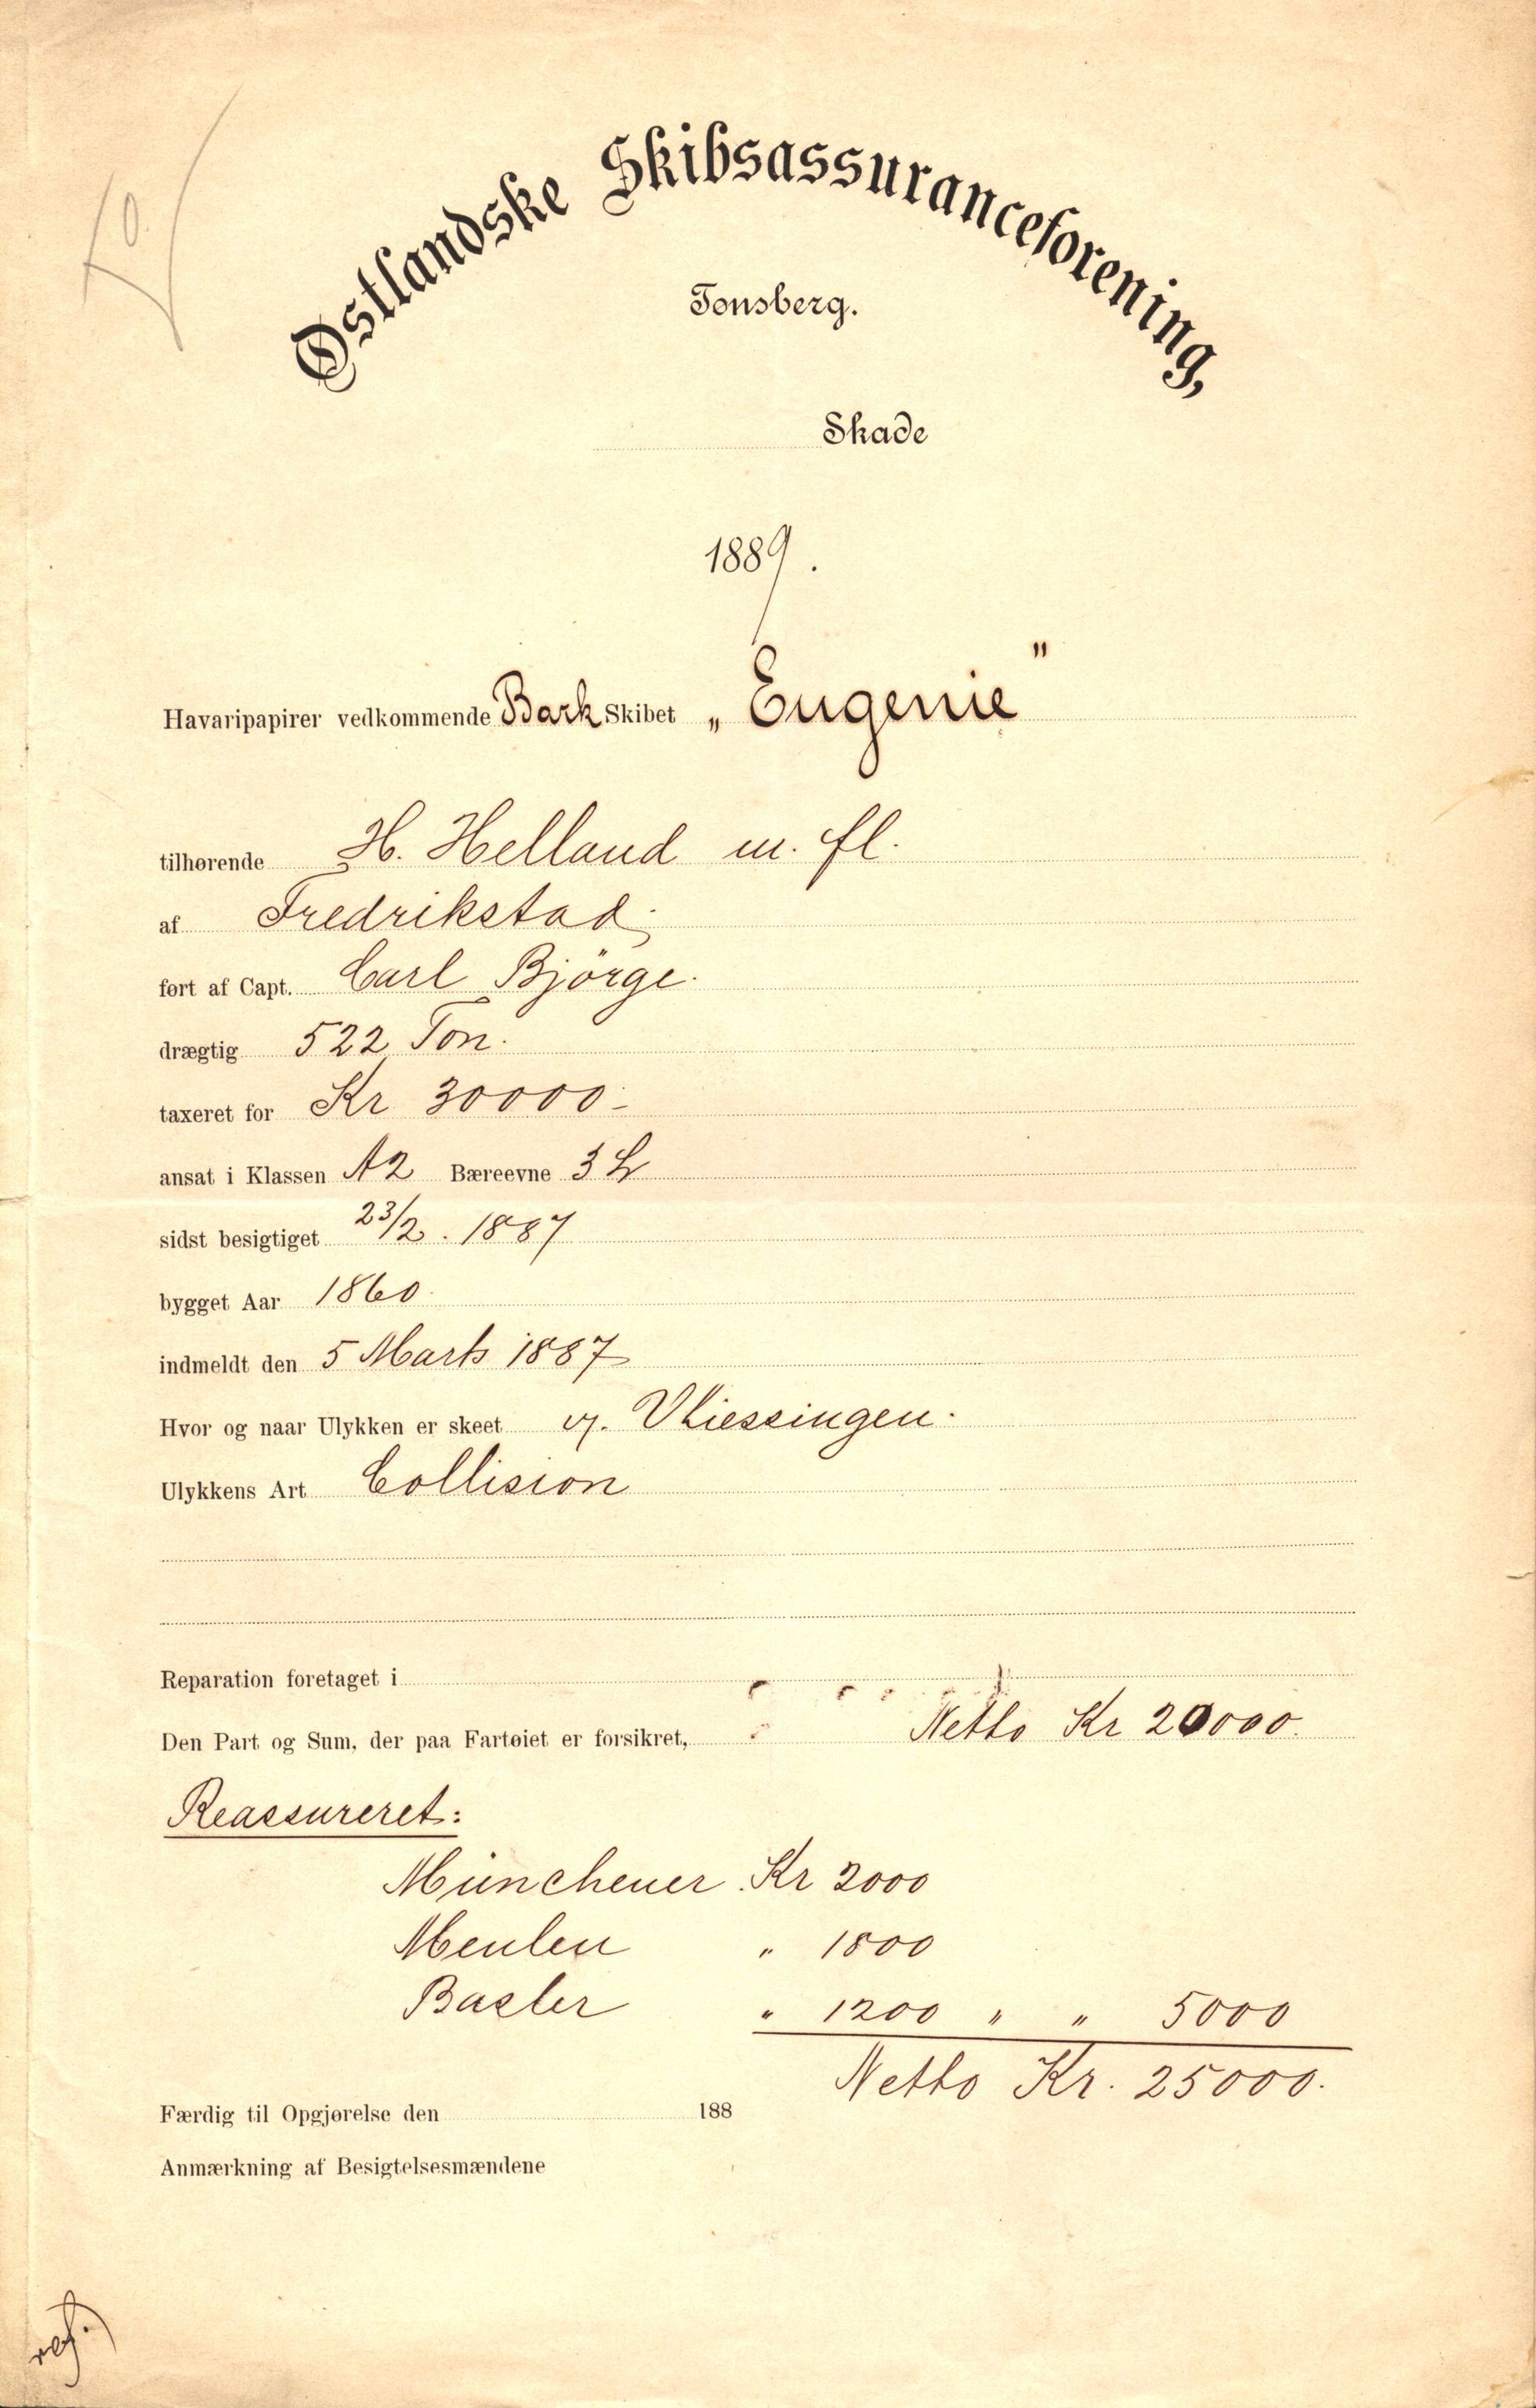 Østlandske Skibsassuranceforening,
Tønsberg.
Skade
1889.
Havaripapirer vedkommende Bark Skibet „Eugenie"
tilhørende H. Helland m. fl.
af Fredrikstad.
ført af Capt. Carl Bjørge.
drægtig 522 Ton.
taxeret for Kr 30000-
ansat i Klassen A2 Bæreevne 3
sidst besigtiget 23/2. 1887
bygget Aar 1860
indmeldt den 5 Marts 1887
Hvor og naar Ulykken er skeet v. Vliessingen.
Ulykkens Art Collision
Reparation foretaget i
Den Part og Sum, der paa Fartøiet er forsikret, Netto Kr 20000.
Reassureret:
Münchener Kr 2000
Meulen " 1800
Basler " 1200 " " 5000
Netto Kr. 25000.
Færdig til Opgjørelse den 188
Anmærkning af Besigtelsesmændene